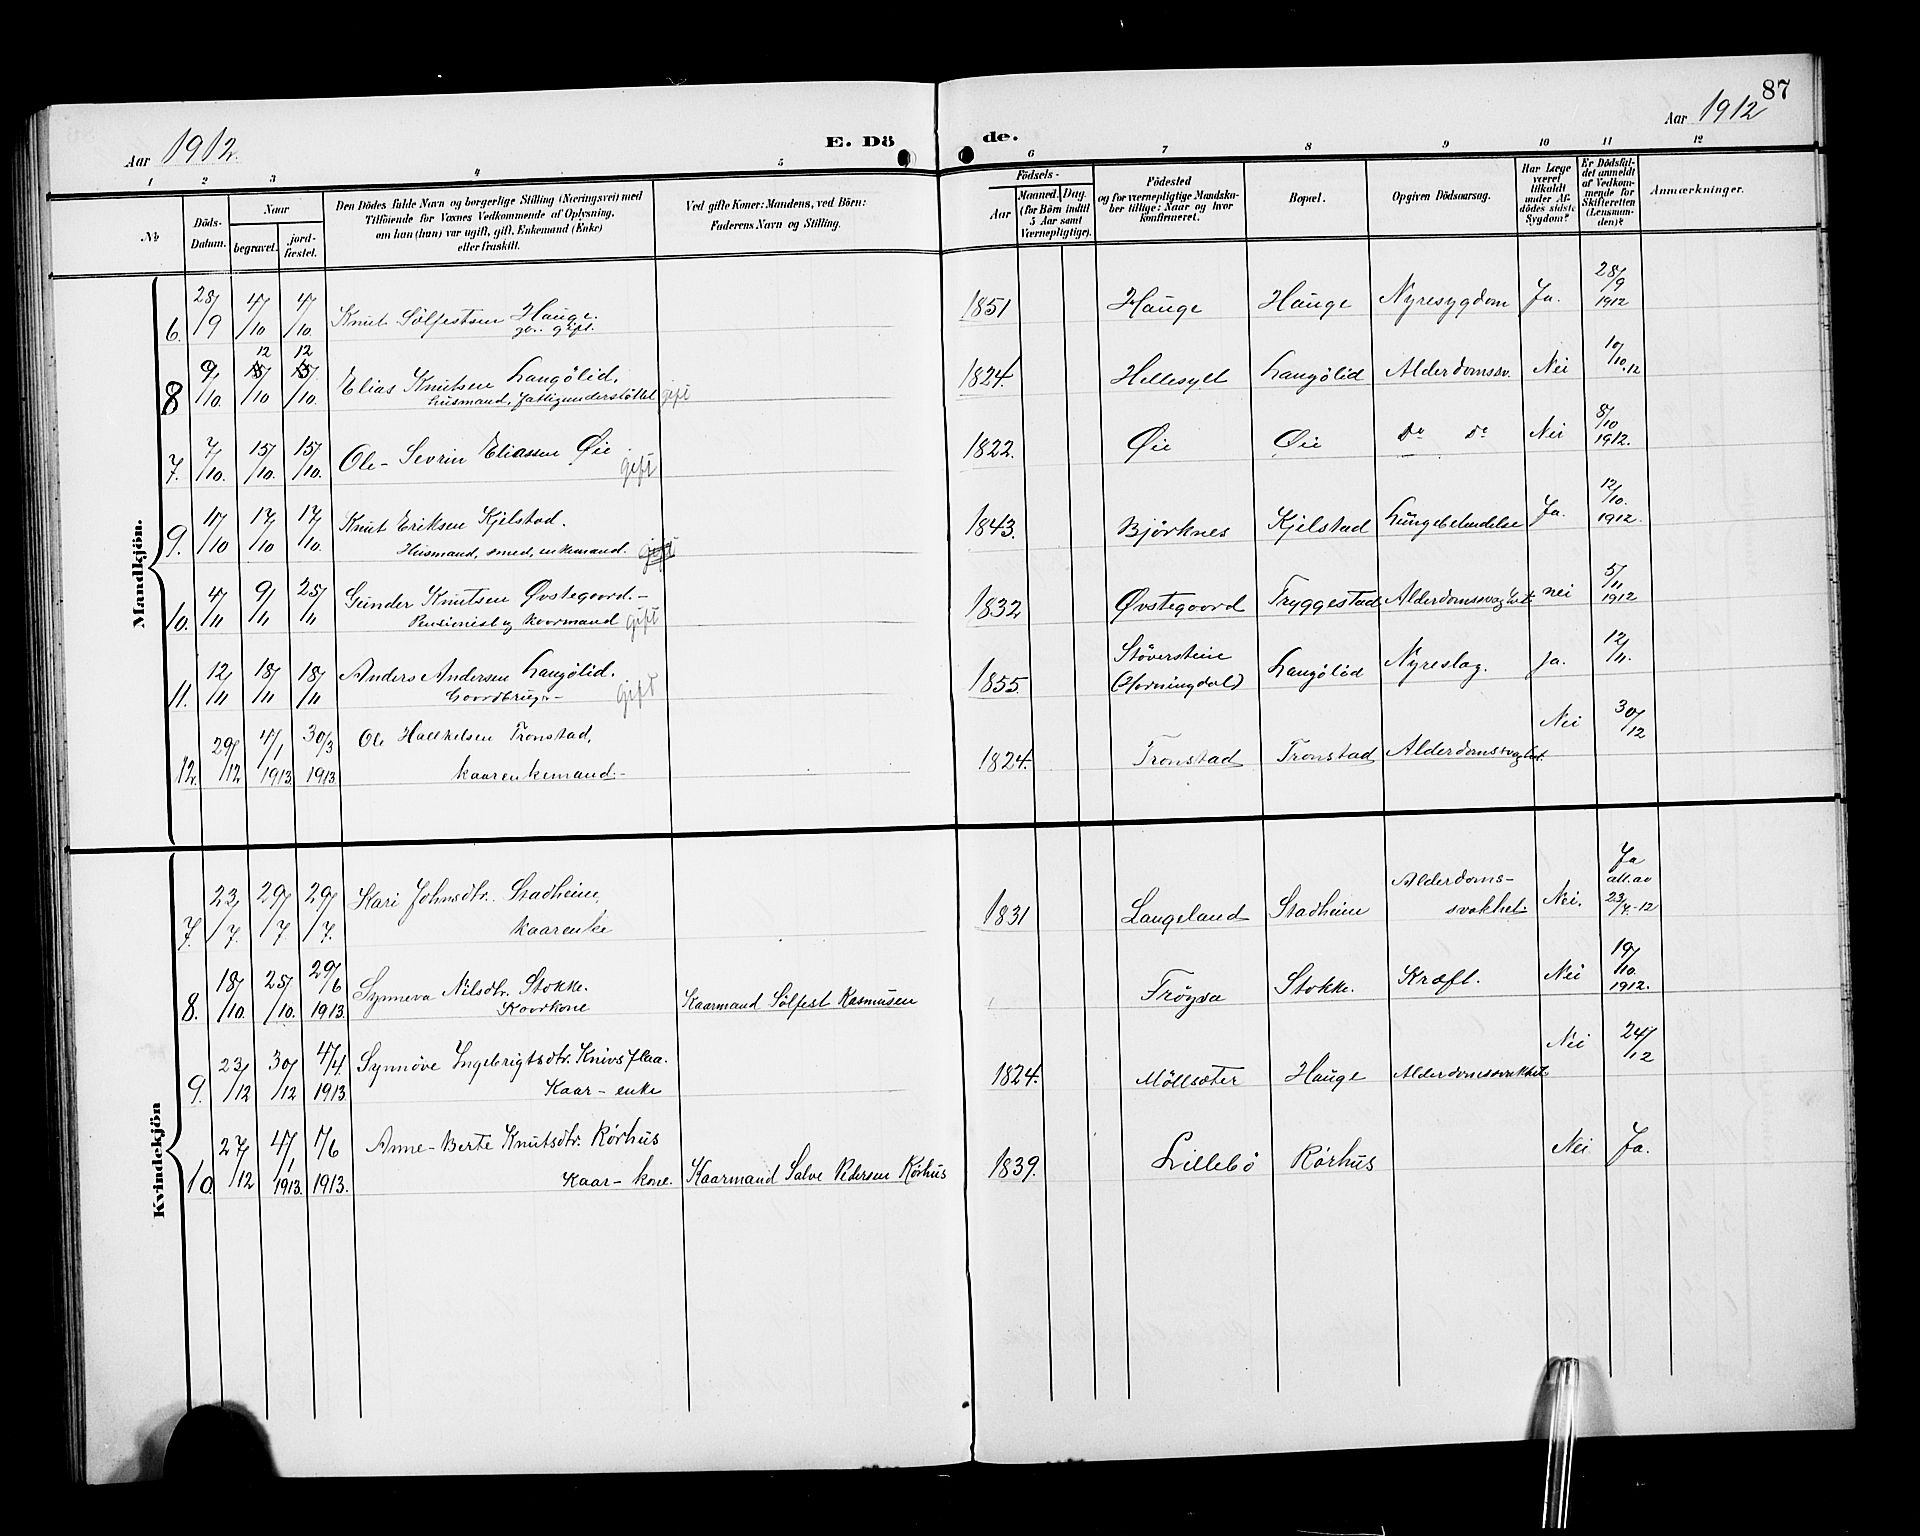 87
Aar 1912.
E. Dö
de.
Aar 1912
1 2 3 4 5 6 7 8 9 10 11 12
No.
Döds-Datum.
Naar
begravet.
jord-fæstet.
Den Dödes fulde Navn og borgerlige Stilling (Næringsvei) med
Tilföiende for Voxnes Vedkommende af Oplysning,
om han (hun) var ugift, gift, Enkemand (Enke)
eller fraskilt.
Ved gifte Koner: Mandens, ved Börn:
Faderens Navn og Stilling.
Födsels-
Aar
Maaned. Dag.
(for Börn indtil
5 Aar samt
Værnepligtige).
Födested
og for værnepligtige Mandska-
ber tillige: Naar og hvor
konfirmeret.
Bopæl.
Opgiven Dödsaarsag.
Har Læge
været
tilkaldt
under Af-
dödes sidste
Sygdom?
Er Dödsfal-
det anmeldt
af Vedkom-
mende for
Skifteretten
(Lensman-
den)?
Anmærkninger.
Mandkjön.
6. 28/9 4/10 4/10 Knut Sölfestsen Hauge. 1851 Hauge Hauge Nyresygdom Ja. 28/9 1912
gift.
8 9/10. 12/10 12/10. Elias Knutsen Langölid. 1824. Hellesylt Langölid Alderdomssv. Nei 10/10.12
Husmand, fattigunderstöttet gift
7. 7/10. 15/10. 15/10. Ole-Sevrin Eliassen Øie gift 1822. Øie Øie do do Nei 8/10 1912.
9. 11/10 17/10 17/10. Knut Eriksen Kjelstad. 1843. Björknes Kjelstad Lungebetendelse Ja. 12/10. 1912.
Husmand, smed, enkemand. gift
10. 4/11 9/11 25/11 Gunder Knutsen Øvstegoord.- 1832 Øvstegoord Tryggestad Alderdomssvaghet nei 5/11 1912
Pensionist og koormand gift
11. 12/11 18/11 18/11 Anders Andersen Langölid. 1855. Störersteine (Horningdal) Langölid Nyreslag. ja. 12/11.
Goordbruger- gift
12. 29/12 4/1 1913. 30/3 1913 Ole Hallkelsen Tronstad, 1824. Tronstad Tronstad Alderdomssvaghet. Nei 30/12
kaarenkemand.-
Kvindekjön
7. 23/7. 29/7. 29/7. Kari Johnsdtr. Stadheim, 1831 Langeland Stadheim Alderdoms-svakhet. Nei. Ja att. av 23/7.-12
kaarenke
8. 18/10. 25/10. 29/6 1913. Synneva Nilsdtr. Stokke. Kaarmand Sölfest Rasmusen Fröysa Stokke. Kræft. Nei 19/10. 1912.
Koorkone
9. 23/12 30/12 4/4 1913. Synnöve Ingebrigtsdtr. Knivsflaa. 1824. Möllsæter Hauge Alderdomssvakhet Nei 24/12
Kaar-enke
10. 27/12 4/1 1913. 1/6 1913. Anne-Berte Knutsdtr. Rörhus
Kaar-kone. Kaarmand Salve Pedersen Rörhus 1839. Lillebö Rörhus Nei Ja.